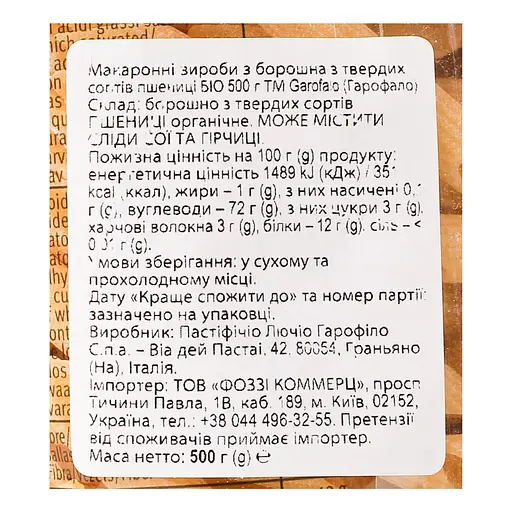 Макаронні вироби з борошна з твердих
сортів пшениці БІО 500 г ТМ Garofalo (Гарофало)
Склад: борошно з твердих сортів
ПШЕНИЦІ органічне. МОЖЕ МІСТИТИ
СЛІДИ СОЇ ТА ГІРЧИЦІ.
Поживна цінність на 100 г (g) продукту:
енергетична цінність 1489 kJ (кДж) / 351
kcal (ккал), жири – 1 г (g), з них насичені 0,1
г (g), вуглеводи – 72 г (g), з них цукри 3 г (g),
харчові волокна 3 г (g), білки – 12 г (g), сіль – <
0,01 г (g).
Умови зберігання: у сухому та
прохолодному місці.
Дату «Краще спожити до» та номер партії
зазначено на упаковці.
Виробник: Пастіфічіо Лючіо Гарофіло
С.п.а. – Віа дей Пастаі, 42, 80054, Граньяно
(На), Італія.
Імпортер: ТОВ «ФОЗЗІ КОММЕРЦ», просп
Тичини Павла, 1В, каб. 189, м. Київ, 02152,
Україна, тел.: +38 044 496-32-55. Претензії
від споживачів приймає імпортер.
Маса нетто: 500 г (g) ℮